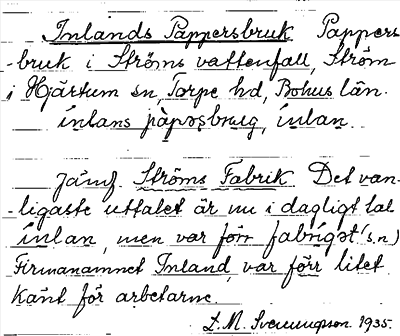 Inlands Pappersbruk Pappers
-bruk i Ströms vattenfall, Ström
i Hjärtum sn Torpe hd, Bohus län.
ínlans páposbrug, ínlan.
Jämf. Ströms Fabrik. Det van-
-ligaste uttalet är nu i dagligt tal
ínlan, men var förr fabrigst (s.n)
Firmanamnet Inland, var förr litet
känt för arbetarne.
L.M. Svenungson 1935.